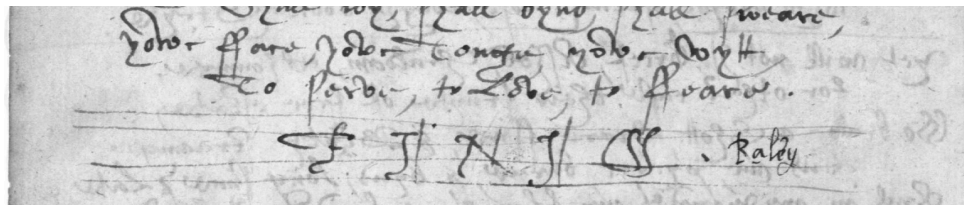 shall bynd shall sweare,
yowr fface yowr Tongue yowr wytt
To serve, to Love to ffeare.
FINIS. Raley